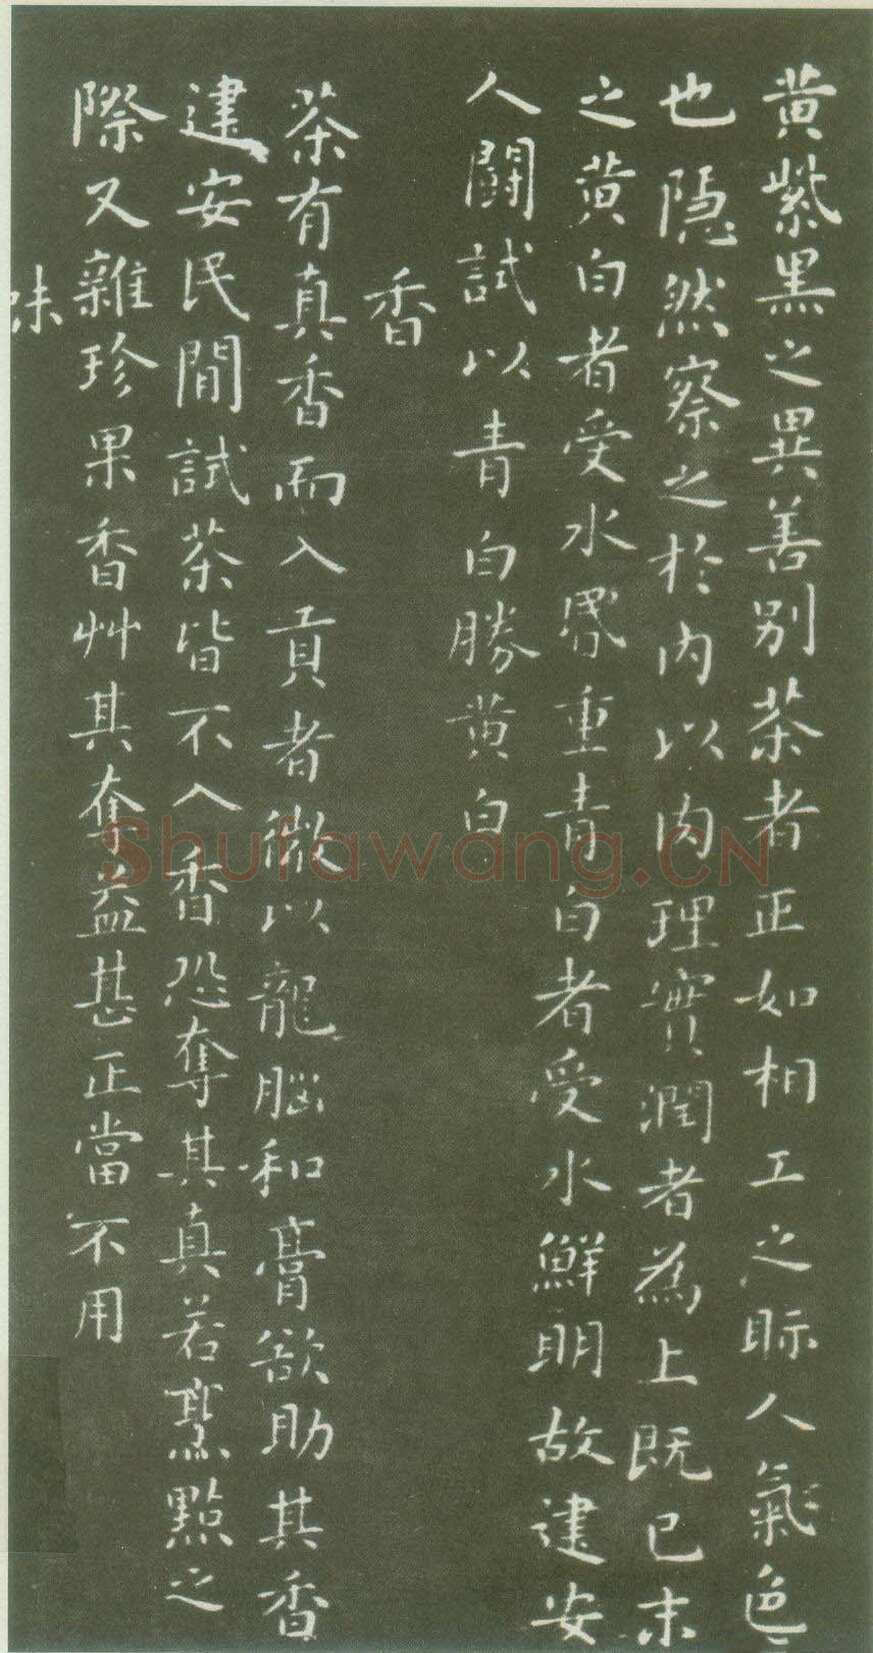 黄紫黒之異善别茶者正如相工之眎人氣色
也隠然察之於内以肉理實潤者為上既已末
之黄白者受水昬重青白者受水鮮明故建安
人鬪試以青白勝黄白
香
茶有真香而入貢者微以龍腦和膏欲助其香
建安民間試茶皆不入香恐奪其真若烹點之
際又雜珍果香艸其奪益甚正當不用
味
Shufawang.CN